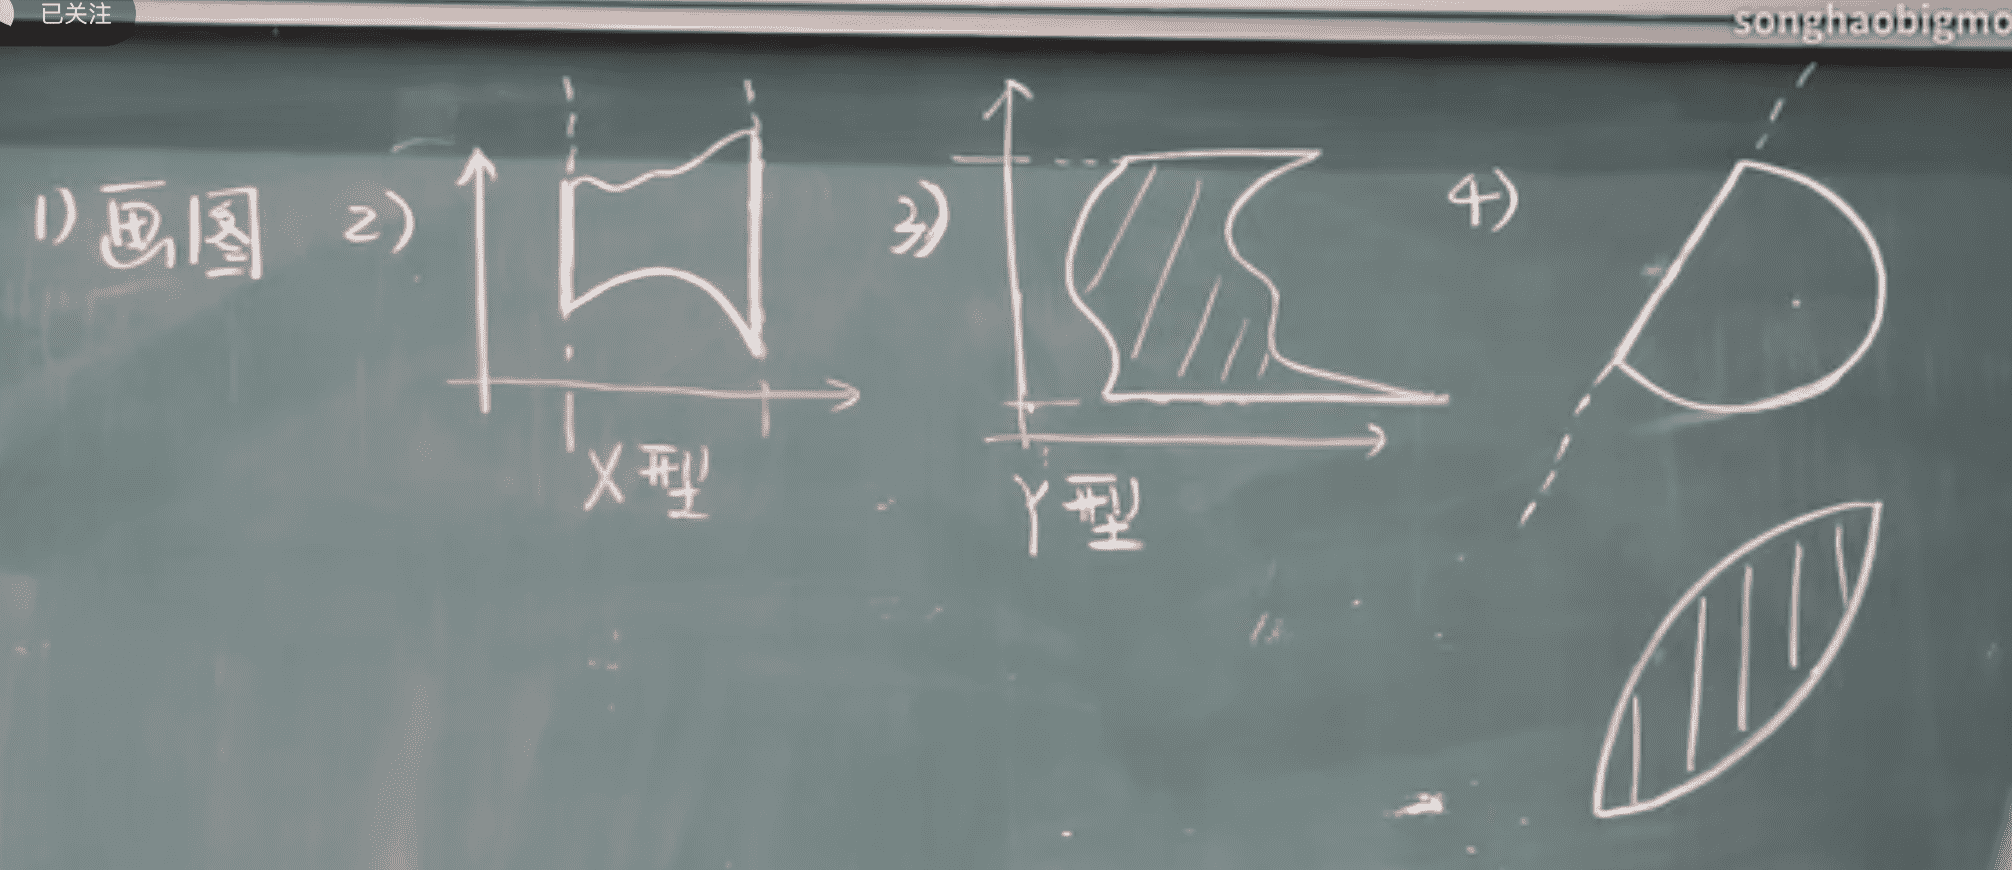 已关注
songhaobigmo
1) 画图 2) 3) 4)
X型
Y型